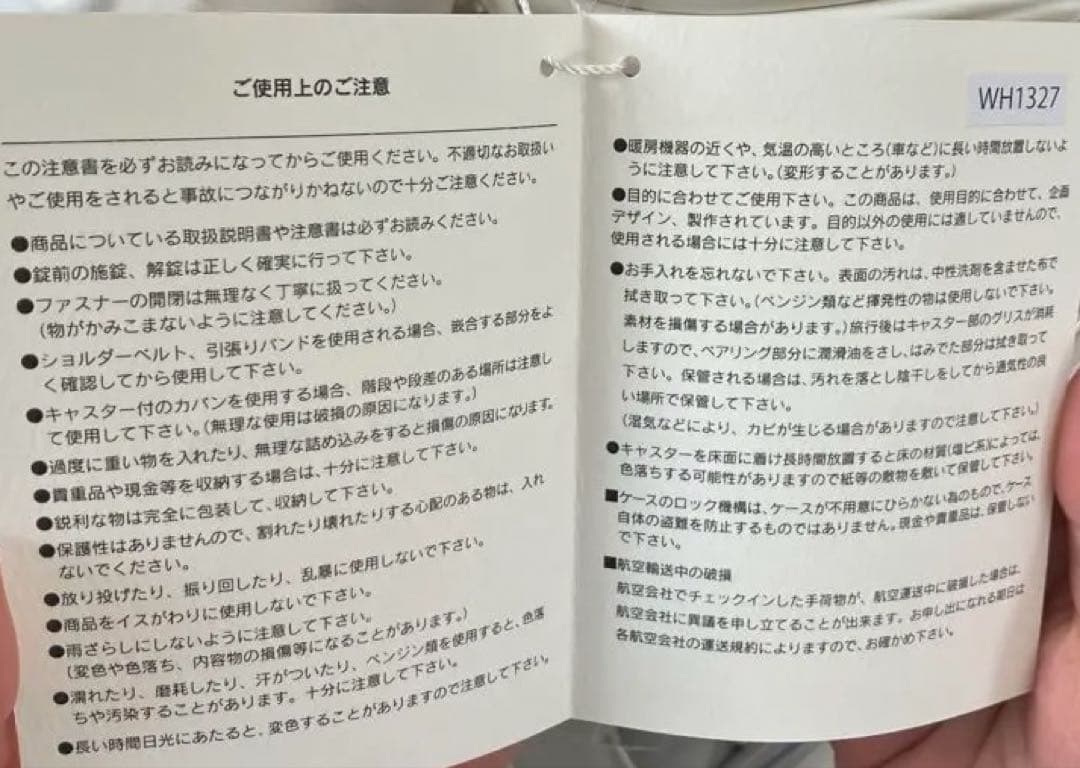 ご使用上のご注意
この注意書を必ずお読みになってからご使用ください。不適切なお取扱い
やご使用をされると事故につながりかねないので十分ご注意ください。
●商品についている取扱説明書や注意書は必ずお読みください。
●錠前の施錠、解錠は正しく確実に行って下さい。
●ファスナーの開閉は無理なく丁寧に扱ってください。
(物がかみこまないように注意してください。)
●ショルダーベルト、引張りバンドを使用される場合、嵌合する部分をよ
く確認してから使用して下さい。
●キャスター付のカバンを使用する場合、階段や段差のある場所は注意し
て使用して下さい。(無理な使用は破損の原因になります。)
●過度に重い物を入れたり、無理な詰め込みをすると損傷の原因になります。
●貴重品や現金等を収納する場合は、十分に注意して下さい。
●鋭利な物は完全に包装して、収納して下さい。
●保護性はありませんので、割れたり壊れたりする心配のある物は、入れ
ないでください。
●放り投げたり、振り回したり、乱暴に使用しないで下さい。
●商品をイスがわりに使用しないで下さい。
●雨ざらしにしないように注意して下さい。
(変色や色落ち、内容物の損傷等になることがあります。)
●濡れたり、磨耗したり、汗がついたり、ベンジン類を使用すると、色落
ちや汚染することがあります。十分に注意して下さい。
●長い時間日光にあたると、変色することがありますので注意して下さい。
WH1327
●暖房機器の近くや、気温の高いところ(車など)に長い時間放置しないよ
うに注意して下さい。(変形することがあります。)
●目的に合わせてご使用下さい。この商品は、使用目的に合わせて、企画
デザイン、製作されています。目的以外の使用には適していませんので、
使用される場合には十分に注意して下さい。
●お手入れを忘れないで下さい。表面の汚れは、中性洗剤を含ませた布で
拭き取って下さい。(ベンジン類など揮発性の物は使用しないで下さい。
素材を損傷する場合があります。)旅行後はキャスター部のグリスが消耗
しますので、ベアリング部分に潤滑油をさし、はみでた部分は拭き取って
下さい。保管される場合は、汚れを落とし陰干しをしてから通気性の良
い場所で保管して下さい。
(湿気などにより、カビが生じる場合がありますので注意して下さい。)
●キャスターを床面に着け長時間放置すると床の材質(塩ビ系)によっては、
色落ちする可能性がありますので紙等の敷物を敷いて保管して下さい。
■ケースのロック機構は、ケースが不用意にひらかない為のもので、ケース
自体の盗難を防止するものではありません。現金や貴重品は、保管しない
で下さい。
■航空輸送中の破損
航空会社でチェックインした手荷物が、航空運送中に破損した場合は、
航空会社に異議を申し立てることが出来ます。お申し出になれる期日は
各航空会社の運送規約によりますので、お確かめ下さい。